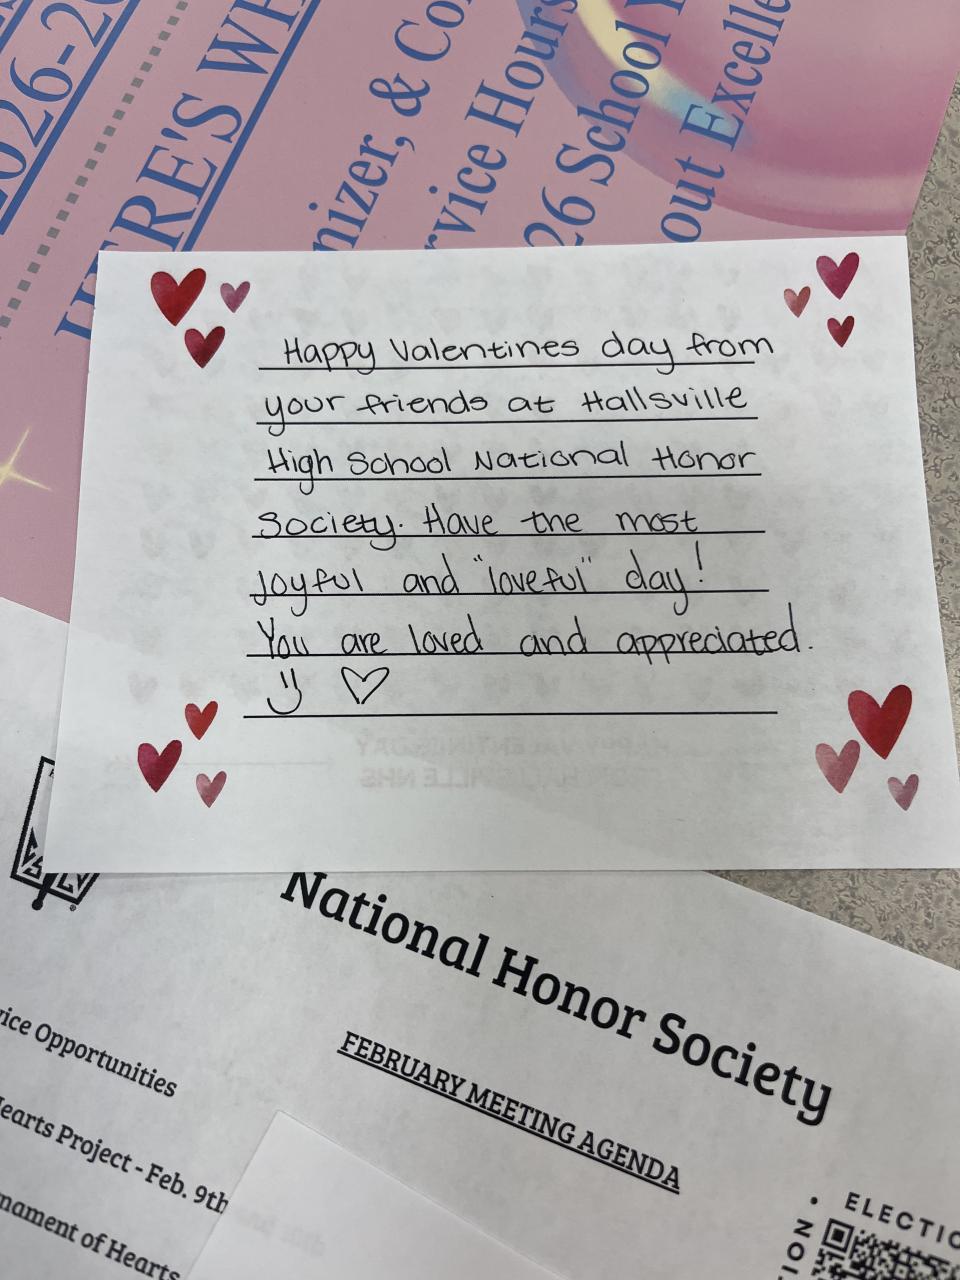 2026-20
HERE'S WH
nizer, & Co
rvice Hours
26 School Y
out Excelle
Happy Valentines day from
your friends at Hallsville
High School National Honor
Society. Have the most
Joyful and "loveful" day!
You are loved and appreciated.
HAPPY VALENTINE'S DAY
FROM HALLSVILLE NHS
National Honor Society
FEBRUARY MEETING AGENDA
vice Opportunities
Hearts Project - Feb. 9th
nament of Hearts
• ELECTIO
ION